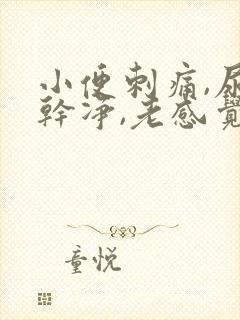 小便刺痛,尿
幹淨,老感覺
童悅